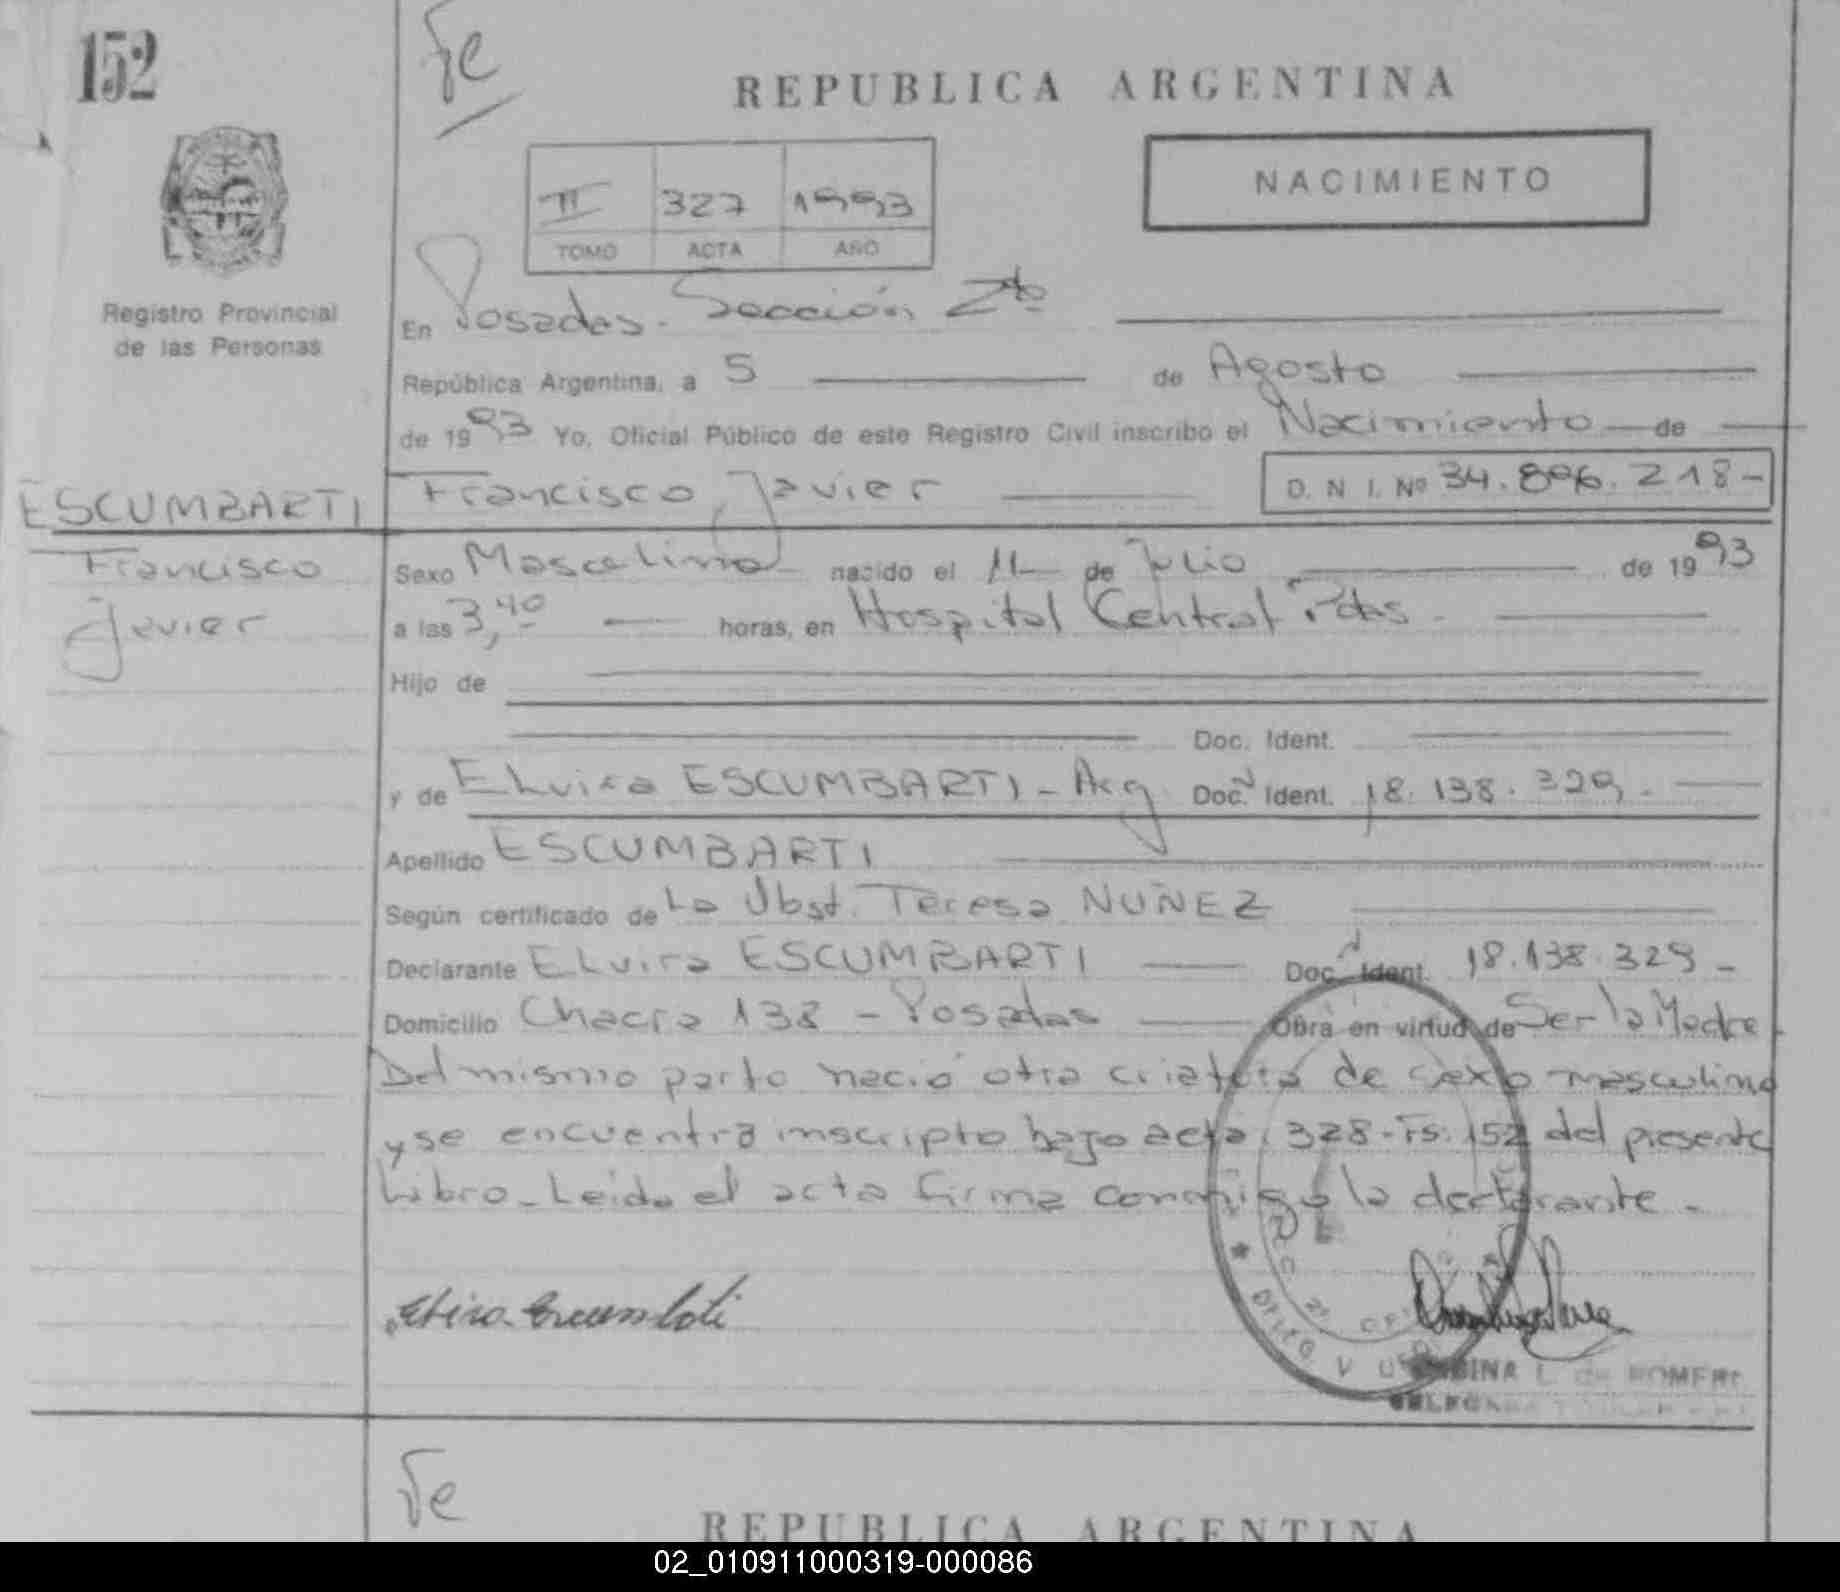 152
Fe
REPUBLICA ARGENTINA
NACIMIENTO
II 327 1993
TOMO ACTA AÑO
Registro Provincial
de las Personas
En Posadas. Sección 2da
República Argentina, a 5 de Agosto
de 1993 Yo, Oficial Público de este Registro Civil inscribo el Nacimiento de
ESCUMBARTI Francisco Javier D. N. I. Nº 34.896.218-
Francisco
Javier
Sexo Masculino nacido el 11 de Julio de 1993
a las 3,40 horas, en Hospital Central Pdas.
Hijo de
Doc. Ident.
y de Elvira ESCUMBARTI - Arg Doc. Ident. 18.138.329.
Apellido ESCUMBARTI
Según certificado de La Obst. Teresa NUÑEZ
Declarante Elvira ESCUMBARTI Doc. Ident. 18.138.329 -
Domicilio Chacra 138 - Posadas Obra en virtud de Ser la Madre
Del mismo parto nació otra criatura de sexo masculino
y se encuentra inscripto bajo acta. 328 - Fs. 152 del presente
Libro - Leida el acta firma conmigo la declarante. -
L. de ROMERO
Fe
REPUBLICA ARGENTINA
02_010911000319-000086